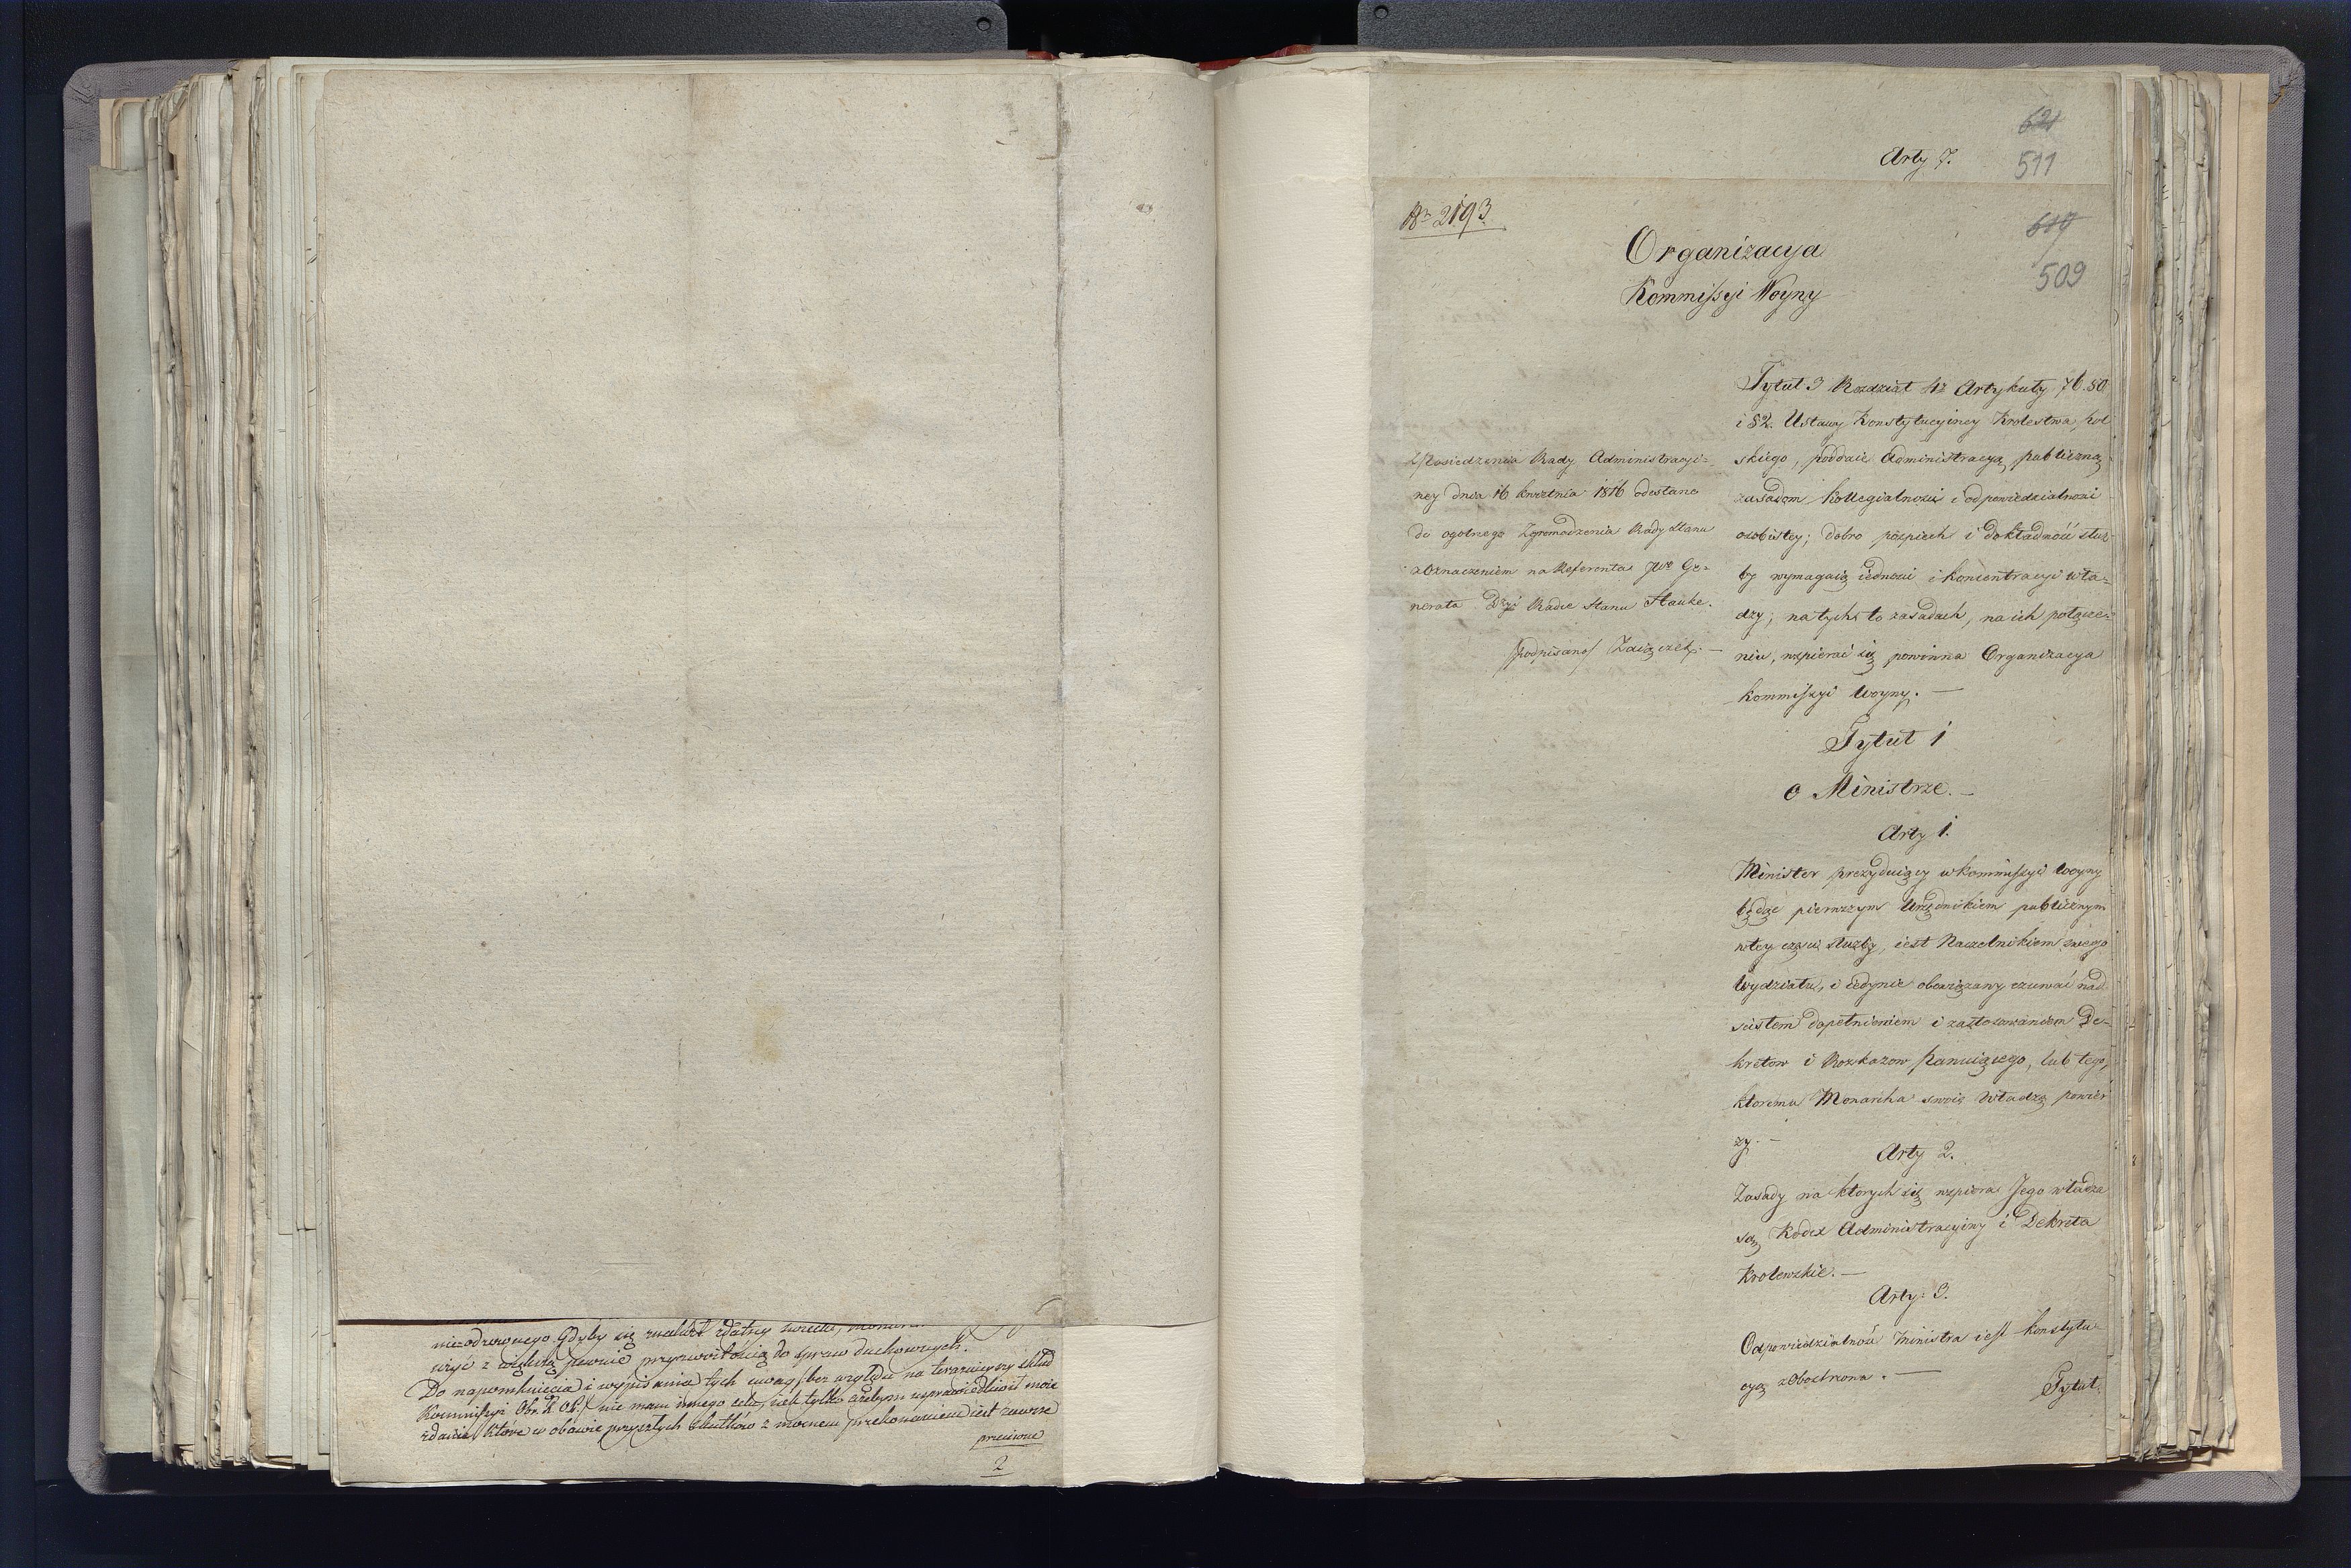 niezodrownego. Gdyby się znalazł zdatny
wyść z większą pewnie przyzwoitością do spraw duchownych.
Do napomknięcia i wypisania tych uwag /bez względu na teraźnieyszy skład
Kommissyi Obr. R. Ob./ nie mam innego celu, iak tylko ażebym usprawiedliwił moie
zdanie, które w obawie przyszłych skutków z mocnem przekonaniem iest zawsze
przeciwne
2
Arty 7.
621
511
Nr 2193
619
509
Organizacya
Kommissyi Woyny
Z Posiedzenia Rady Administracyi=
ney dnia 16 kwietnia 1816 odesłano
do ogolnego Zgromadzenia Rady Stanu
z oznaczeniem na Referenta JWo Ge=
nerała Radcę Stanu Hauke.
/podpisano/ Zaiączek. —
Tytuł 3 Rozdział 4ty Artykuły 76. 80
i 82. Ustawy Konstytucyiney Krolestwa Pol
skiego, poddaie Administracyą publiczną
zasadom kollegialności i odpowiedzialności
osobistey; dobro pośpiech i dokładność służ
by wymagaią iedności i koncentracyi wła=
dzy; na tych to zasadach, na ich połącze=
niu, wspierać się powinna Organizacya
kommissyi Woyny. —
Tytuł 1
o Ministrze. —
Arty 1.
Minister prezyduiący w kommissyi Woyny
będąc pierwszym Urzędnikiem publicznym
w tey części służby, iest Naczelnikiem swego
Wydziału, i iedynie obowiązany czuwać nad
scisłem dopełnieniem i zastosowaniem De=
kretow i Rozkazow Panuiącego, lub tego,
ktoremu Monarcha swoią Władzę powier
zy. —
Arty 2.
Zasady na ktorych się wspiera Jego władza
są Kodex Administracyiny i Dekreta
Krolewskie. —
Arty. 3.
Odpowiedzialność Ministra iest konstytu=
cyą zobostrzona. —
Tytuł.